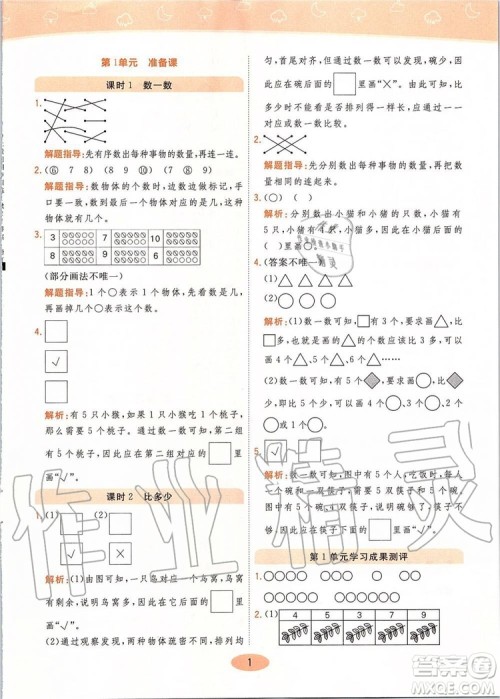 第1单元 准备课
课时1 数一数
1.
解题指导:先有序数出每种事物的数量,再连一连。
2.(⑥ 7 8) (7 8 ⑨) (8 ⑨
解题指导:数物体的个数时,从1开始数,手
口要一致,数到最后一个物体,数到几,物体
的数量就有几个。
3. 3 7 10
8 9 6
(部分画法不唯一)
解题指导:1个○表示1个物体,数量是几,
再画掉几个○表示。
4.
√
解析:有5只小猴,如果1只小猴吃1个桃子,
那么需要5个桃子。通过数一数可知,第二组
有5个桃子,因此应在第二组对应的□里
画“√”。
课时2 比多少
1.(1) √ (2)
×
解析:(1)由图可知,一只鸟对应一个鸟窝,鸟窝
有剩余,说明鸟窝多,因此应在鸟窝对应的
□里画“√”。
(2)通过观察发现,两种物体虽然长度一样,排列均
匀,首尾对齐,但通过数一数可以发现,碗少,因
此应在碗后面的□里画“×”,比
多少时不能只看长度,要
对应或数一数。
2.
解题指导:先分别数出每种事物的数量,再把
数量相同的连起来。
3.(√)( )
解析:分别数出小猫和小猪的只数,小猫有
5只,小猪有4只,因此,小猫多,应在小猫的
( )里画“√”。
4.(答案不唯一)
(1)△△△△
(2)○○○○○○
解析:(1)数一数可知,有3个□,要求画△,比
□多,所以画△的个数应该比3多,可以画
4个、5个、6个……
(2)数一数可知,有5个,要求画○,比
多,所以画○的个数应该比5多,可以画
6个、7个、8个……
5. √
解析:数一数可知,图中有5个人,吃饭时,一
个人需要一个碗和一双筷子,图中有5双筷子和
4个碗,5双筷子正好,因此应在5双筷子的□里
画“√”。
第1单元学习成果测评
1.○○○○ ○○○○○ ○○○○○○
2.(1) 5 1 7 9
1